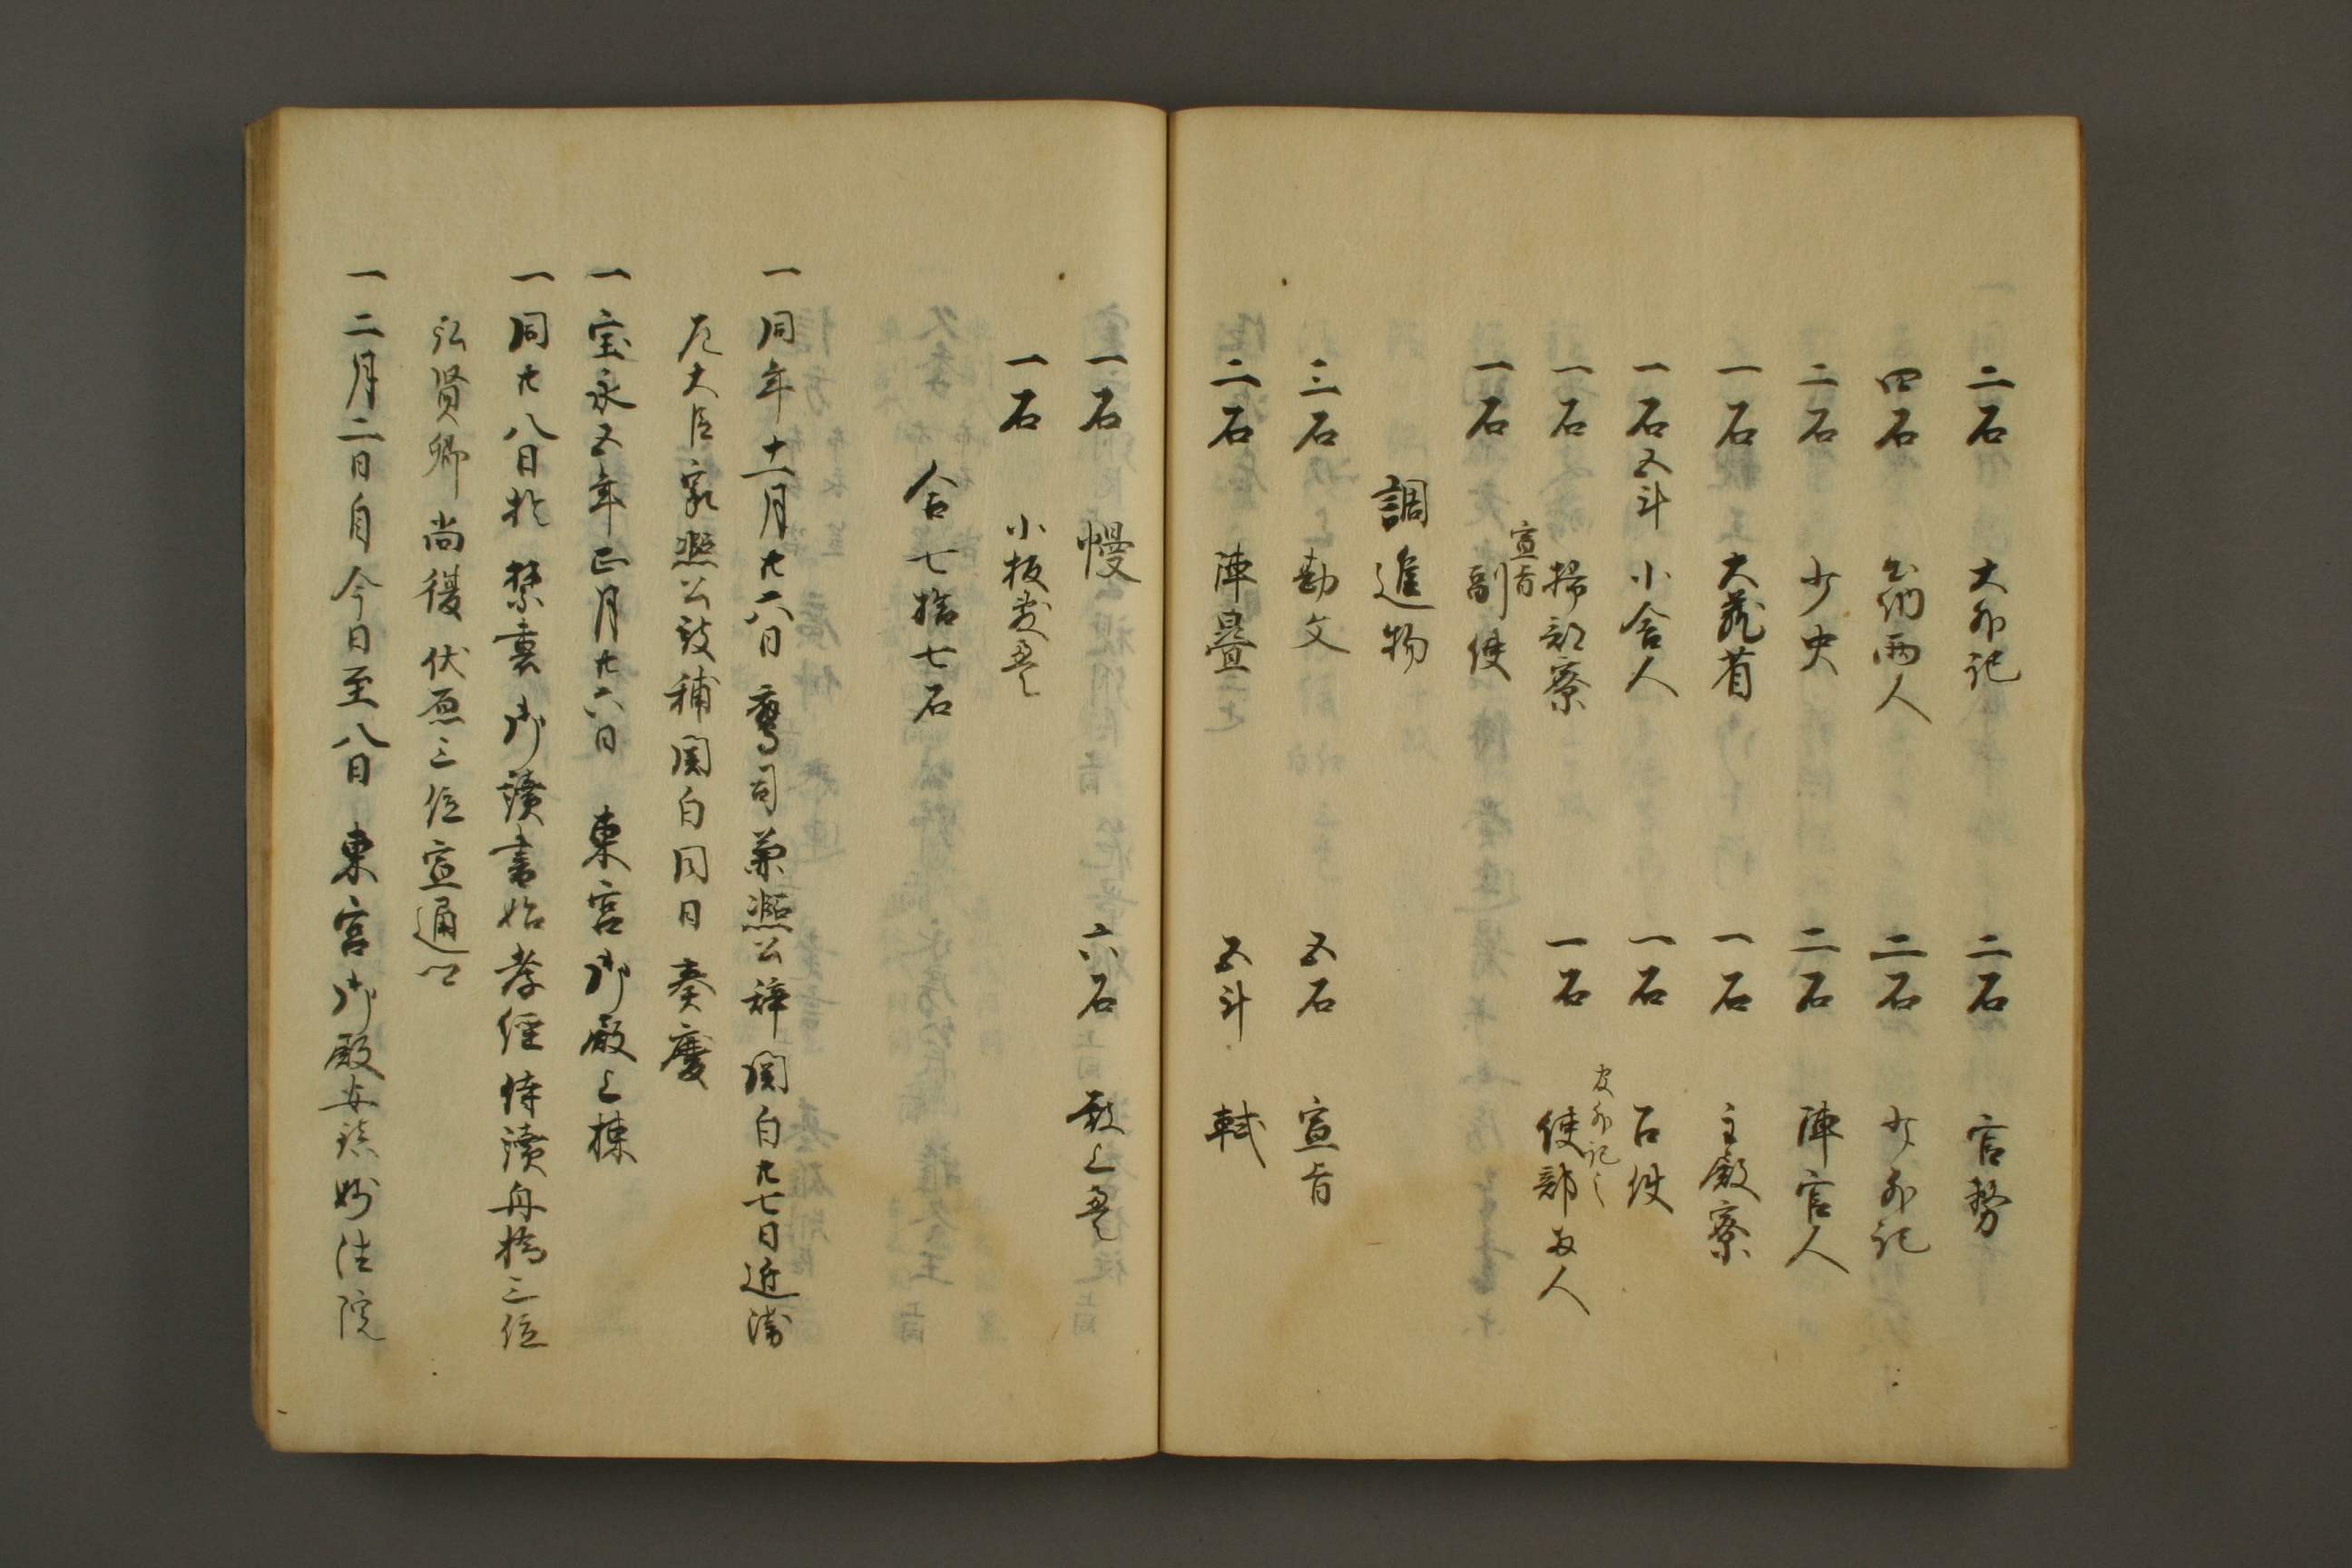 二石 大外記 二石 官務
四石 出納両人 二石 少外記
二石 少史 二石 陣官人
一石 大蔵省 一石 主殿寮
一石五斗 小舎人 一石 召使
一石 掃部寮 一石 使部両人
宣旨
一石 副使
調進物
三石 勘文 五石 宣旨
二石 陣畳 五斗 軾
一石 幔 六石 殿上畳
一石 小板敷畳
合七拾七石
一同年十一月廿六日 鷹司兼熙公辞関白廿七日近衛
左大臣家熙公被補関白同日奏慶
一宝永五年正月廿六日 東宮御殿上棟
一同廿八日於 禁裏御読書始孝経侍読舟橋三位
弘賢卿 尚復伏原三位宣通卿
一二月二日自今日至八日 東宮御殿安鎮妙法院